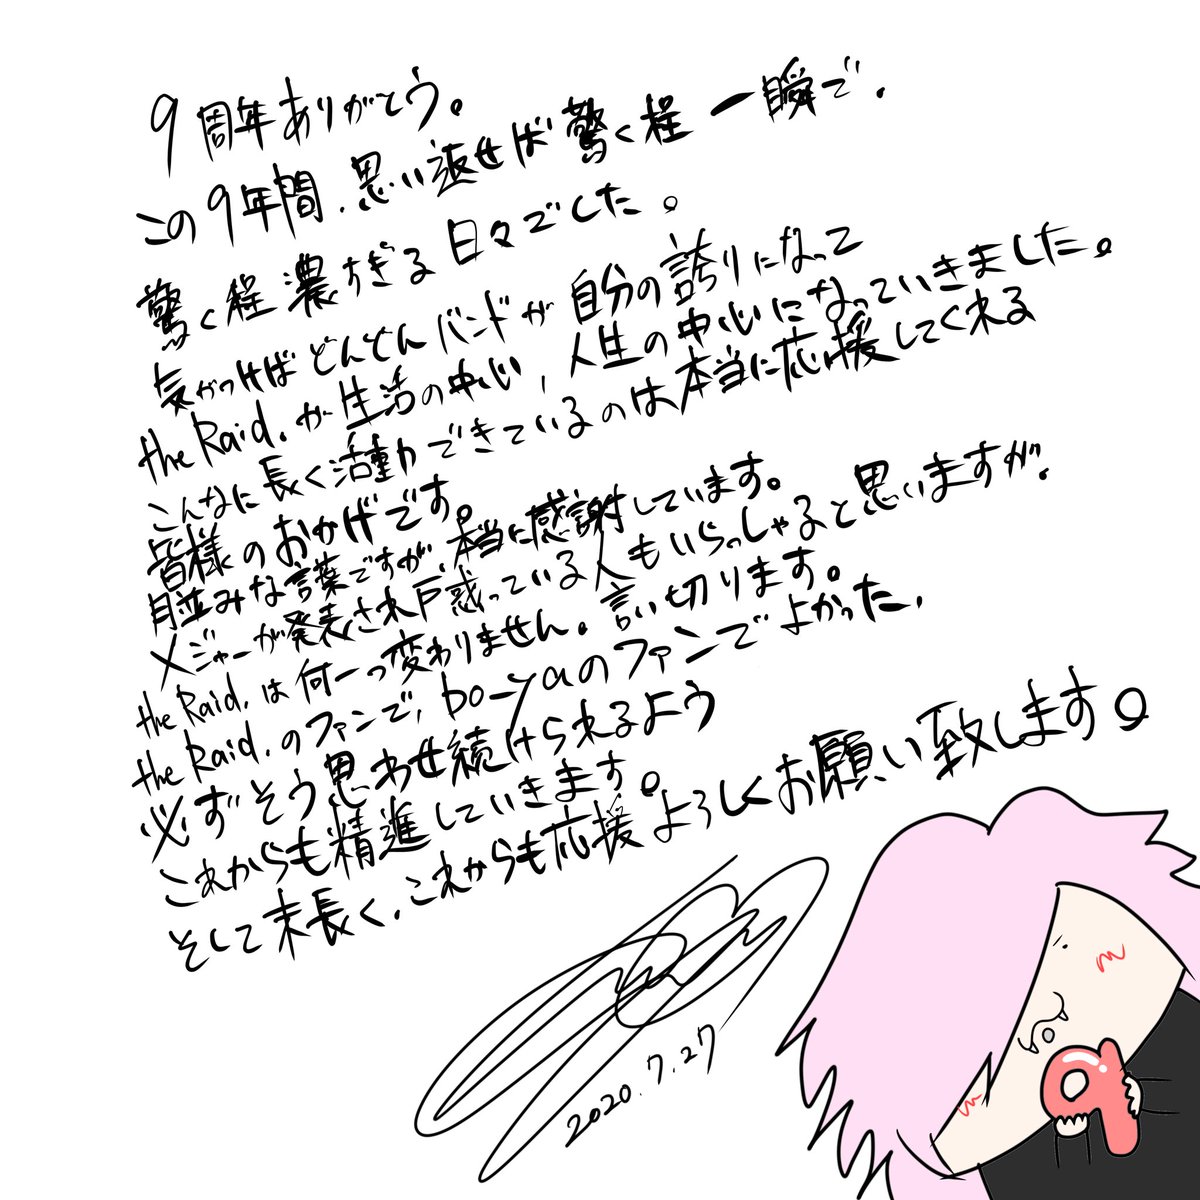 9周年ありがとう。
この9年間、思い返せば驚く程一瞬で、
驚く程濃すぎる日々でした。
気がつけばどんどんバンドが自分の誇りになって
the Raid.が生活の中心、人生の中心になっていきました。
こんなに長く活動できているのは本当に応援してくれる
皆様のおかげです。
月並みな言葉ですが、本当に感謝しています。
メジャーが発表され戸惑っている人もいらっしゃると思いますが、
the Raid.は何一つ変わりません。言い切ります。
the Raid.のファンで、bo-yaのファンでよかった、
必ずそう思わせ続けられるよう
これからも精進していきます。
そして末長く、これからも応援よろしくお願い致します。
2020.7.27
9